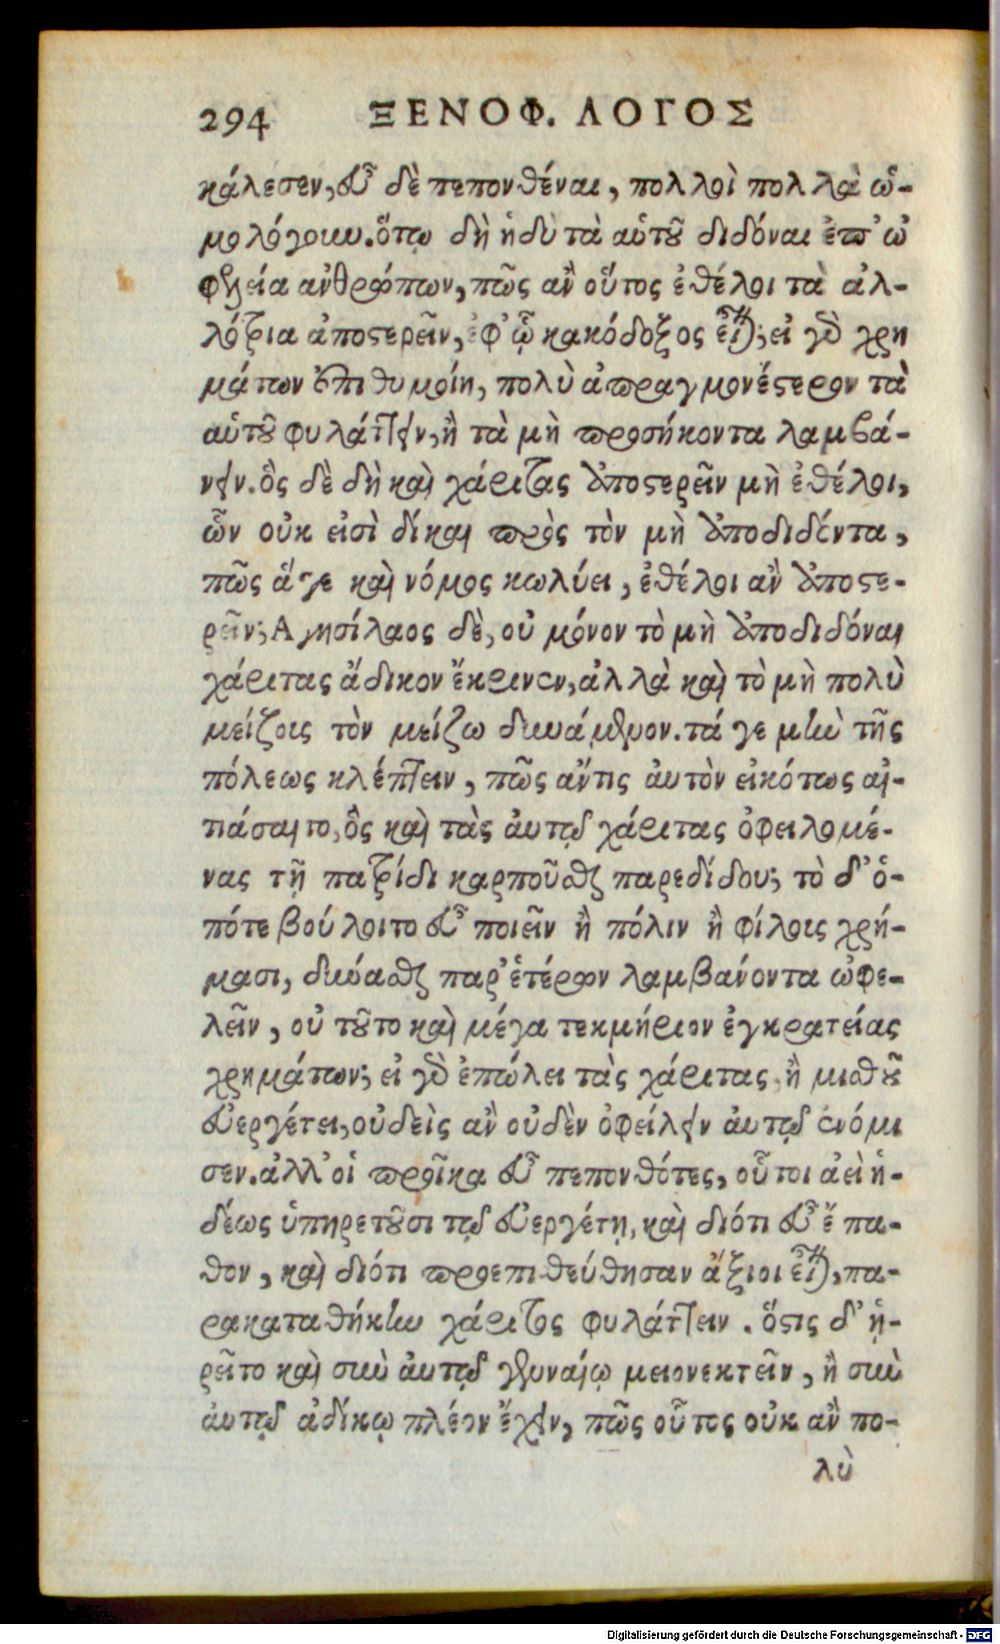 294 ΞΕΝΟΦ. ΛΟΓΟΣ
κάλεσεν, εὖ δὲ πεπονθέναι, πολλοὶ πολλὰ ὡ-
μολόγουν. ὅτῳ δὴ ἡδὺ τὰ αὑτοῦ διδόναι ἐπ' ὠ
φελείᾳ ἀνθρώπων, πῶς ἂν οὗτος ἐθέλοι τὰ ἀλ-
λότρια ἀποστερεῖν, ἐφ' ᾧ κακόδοξος εἶναι; εἰ γὸ χρη
μάτων ἐπιθυμοίη, πολὺ ἀπραγμονέστερον τὰ
αὑτοῦ φυλάττειν, ἢ τὰ μὴ προσήκοντα λαμβά-
νειν. ὃς δὲ δὴ καὶ χάριτας ἀποστερεῖν μὴ ἐθέλοι,
ὧν οὐκ εἰσὶ δίκαι πρὸς τὸν μὴ ἀποδιδόντα,
πῶς ἅ γε καὶ νόμος κωλύει, ἐθέλοι ἂν ἀποστε-
ρεῖν; Αγησίλαος δὲ, οὐ μόνον τὸ μὴ ἀποδιδόναι
χάριτας ἄδικον ἔκρινεν, ἀλλὰ καὶ τὸ μὴ πολὺ
μείζοις τὸν μείζω δυνάμενον. τά γε μὴν τῆς
πόλεως κλέπτειν, πῶς ἄντις ἀυτὸν εἰκότως αἰ-
τιάσαιτο, ὃς καὶ τὰς ἀυτῷ χάριτας ὀφειλομέ-
νας τῇ πατρίδι καρποῦσθαι παρεδίδου; τὸ δ' ὁ-
πότε βούλοιτο εὖ ποιεῖν ἢ πόλιν ἢ φίλοις χρή-
μασι, δύνασθαι παρ' ἑτέρων λαμβάνοντα ὠφε-
λεῖν, οὐ τοῦτο καὶ μέγα τεκμήριον ἐγκρατείας
χρημάτων; εἰ γὸ ἐπώλει τὰς χάριτας, ἢ μισθοῦ
εὐεργέτει, οὐδεὶς ἂν οὐδὲν ὀφείλειν ἀυτῷ ἐνόμι
σεν. ἀλλ' οἱ προῖκα εὖ πεπονθότες, οὗτοι ἀεὶ ἡ-
δέως ὑπηρετοῦσι τῷ εὐεργέτῃ, καὶ διότι εὖ ἔπα-
θον, καὶ διότι προεπιστεύθησαν ἄξιοι εἶναι, πα-
ρακαταθήκην χάριτος φυλάττειν. ὅστις δ' ᾑ-
ρεῖτο καὶ σὺν ἀυτῷ γενναίῳ μειονεκτεῖν, ἢ σὺν
ἀυτῷ ἀδίκῳ πλέον ἔχειν, πῶς οὗτος οὐκ ἂν πο-
λὺ
Digitalisierung gefördert durch die Deutsche Forschungsgemeinschaft - DFG